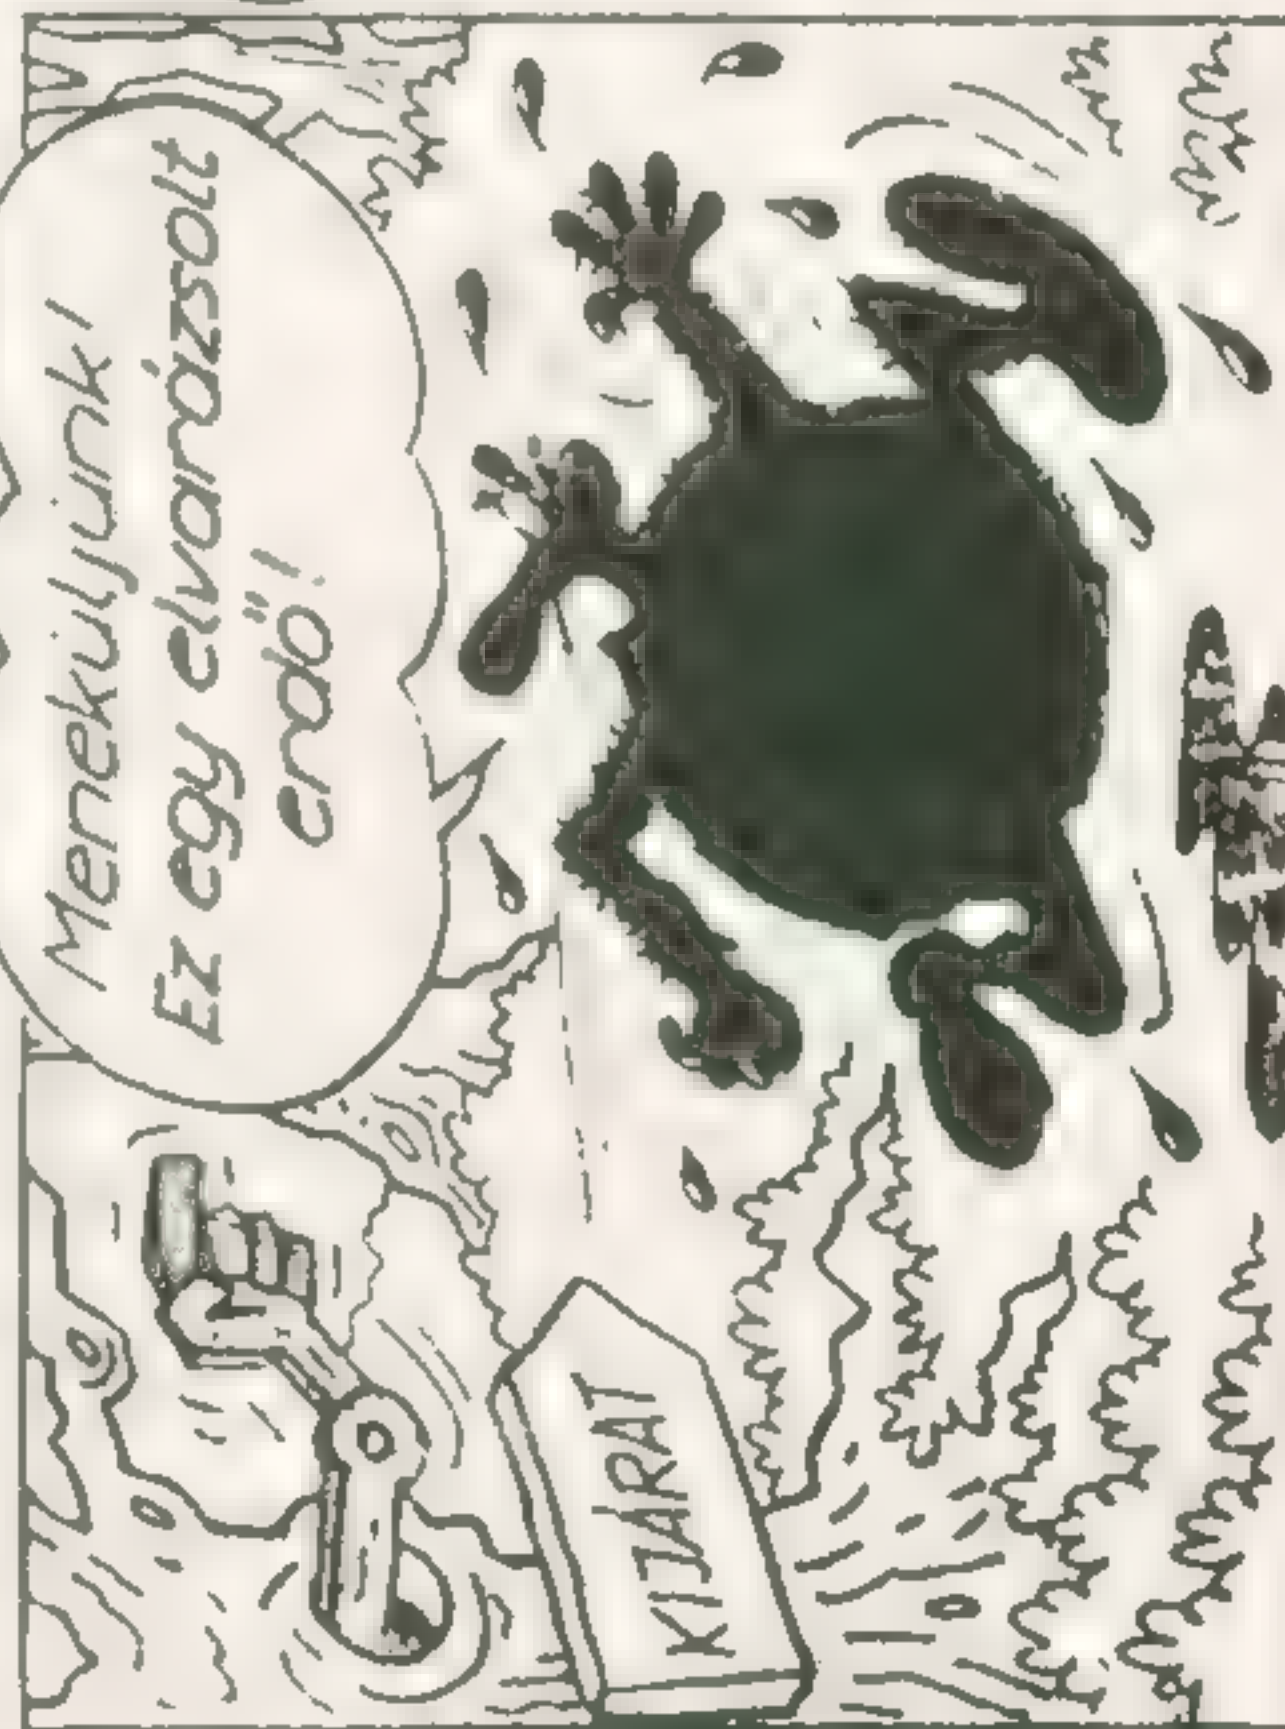 Meneküljünk!
Ez egy elvarázsolt
erdő!
KIJÁRAT